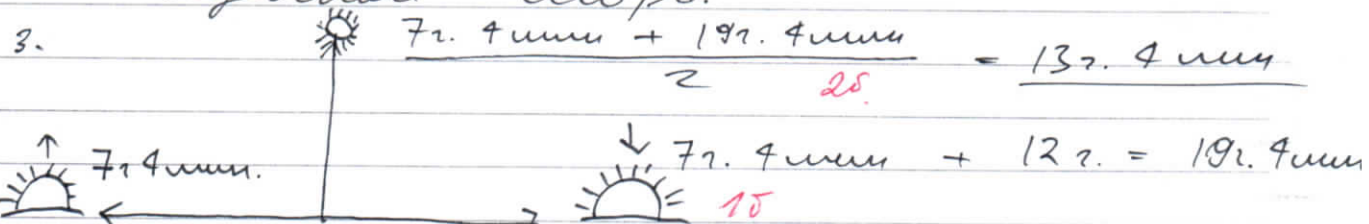 3.
7г. 4мин + 19г. 4мин
2
2б.
= 13г. 4 мин
7г 4мин.
7г. 4мин + 12г. = 19г. 4мин
1б